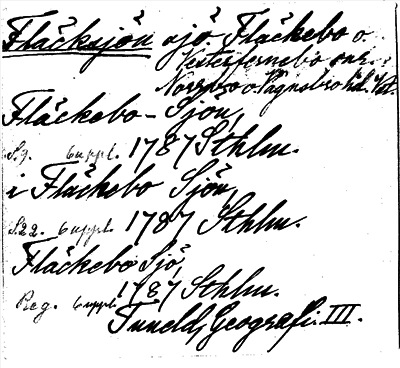 Fläcksjön sjö Fläckebo o.
Vesterfernebo snr.
Norrbo o Vagnsbro hd. Vstl.
Fläckebo-Sjön,
S.9. 6 uppl. 1787 Sthlm.
i Fläckebo Sjön,
S.22. 6 uppl. 1787 Sthlm.
Fläckebo Sjö,
Reg. 6 uppl. 1787 Sthlm.
Tuneld, Geografi. III.